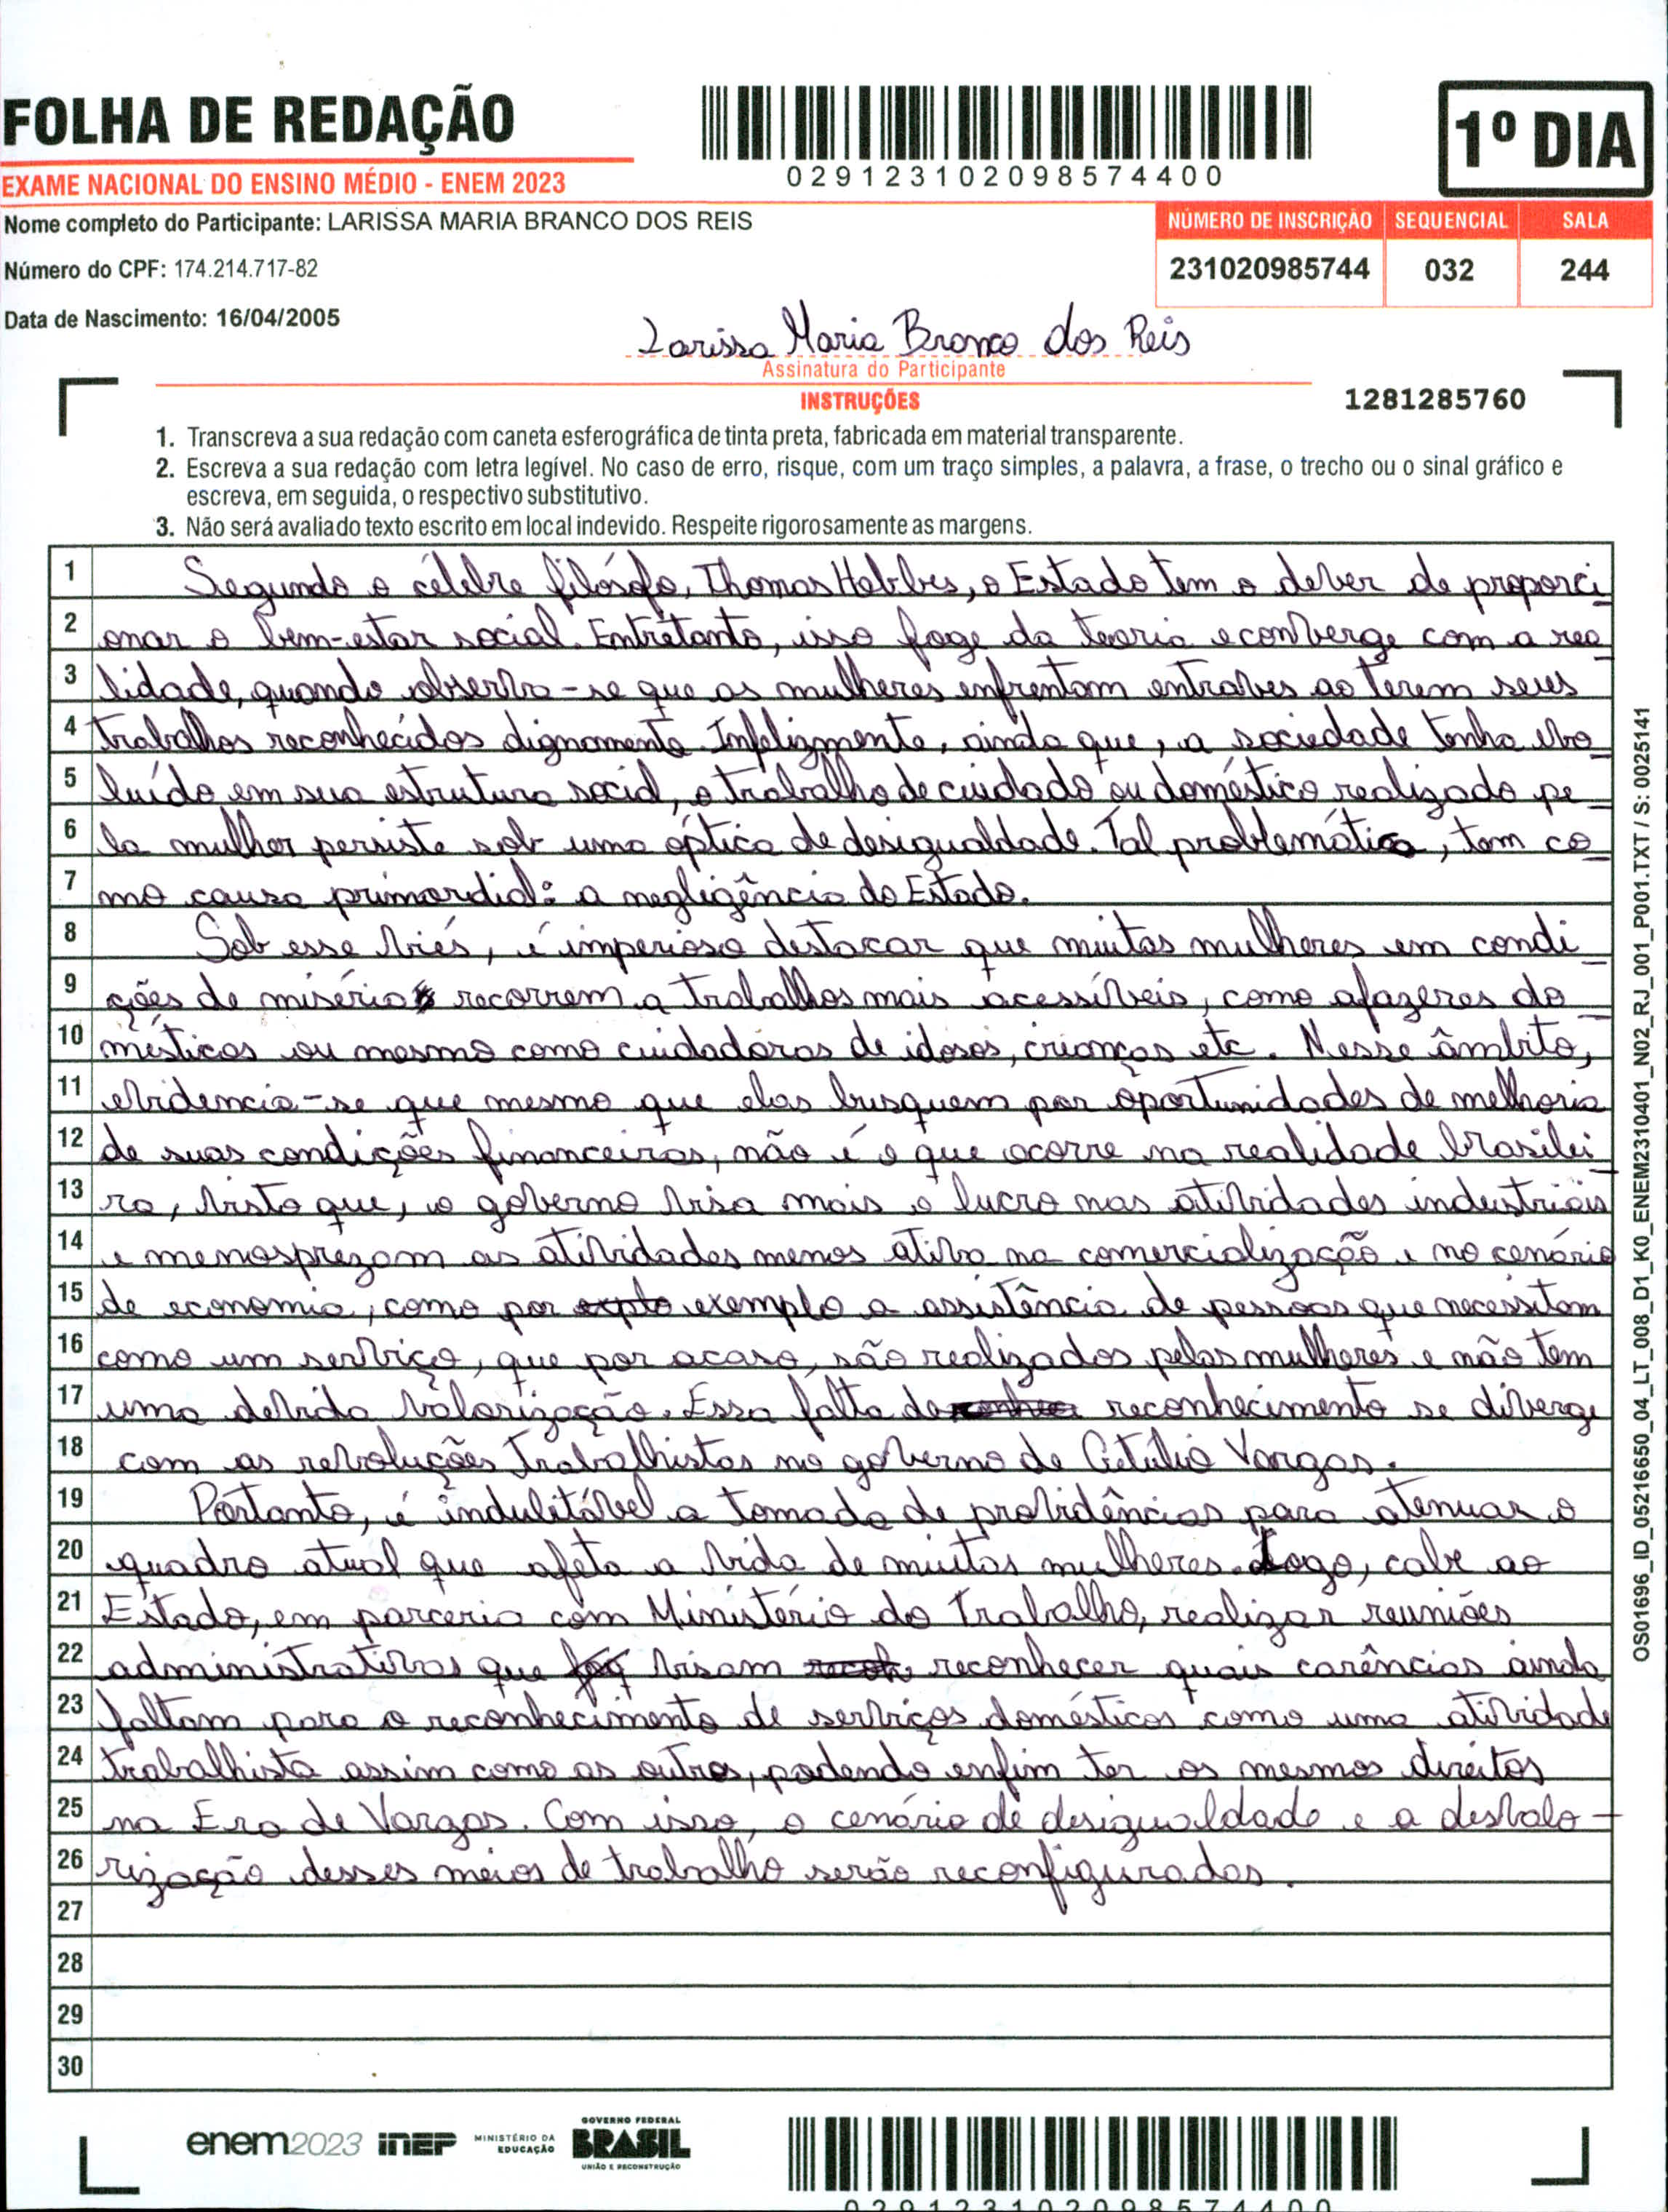 FOLHA DE REDAÇÃO
029123102098574400
1º DIA
EXAME NACIONAL DO ENSINO MÉDIO - ENEM 2023
Nome completo do Participante: LARISSA MARIA BRANCO DOS REIS
NÚMERO DE INSCRIÇÃO SEQUENCIAL SALA
Número do CPF: 174.214.717-82
231020985744 032 244
Data de Nascimento: 16/04/2005
Larissa Maria Branco dos Reis
Assinatura do Participante
INSTRUÇÕES
1281285760
1. Transcreva a sua redação com caneta esferográfica de tinta preta, fabricada em material transparente.
2. Escreva a sua redação com letra legível. No caso de erro, risque, com um traço simples, a palavra, a frase, o trecho ou o sinal gráfico e
escreva, em seguida, o respectivo substitutivo.
3. Não será avaliado texto escrito em local indevido. Respeite rigorosamente as margens.
1 Segundo o célebre filósofo, Thomas Hobbes, o Estado tem o dever de proporci
2 onar o bem-estar social. Entretanto, isso foge da teoria e converge com a rea
3 lidade, quando observa-se que as mulheres enfrentam entraves ao terem seus
4 trabalhos reconhecidos dignamente. Infelizmente, ainda que, a sociedade tenha evo
5 luído em sua estrutura social, o trabalho de cuidado ou doméstico realizado pe
6 la mulher persiste sob uma óptica de desigualdade. Tal problemática, tem co
7 mo causa primordial: a negligência do Estado.
8 Sob esse viés, é imperioso destacar que muitas mulheres em condi
9 ções de miséria recorrem a trabalhos mais acessíveis, como afazeres do
10 mésticos ou mesmo como cuidadoras de idosos, crianças etc. Nesse âmbito,
11 evidencia-se que mesmo que elas busquem por oportunidades de melhoria
12 de suas condições financeiras, não é o que ocorre na realidade brasilei
13 ra, visto que, o governo visa mais o lucro nas atividades industriais
14 e menosprezam as atividades menos ativa na comercialização e no cenário
15 de economia, como por exemplo a assistência de pessoas que necessitam
16 como um serviço, que por acaso, são realizados pelas mulheres e não tem
17 uma devida valorização. Essa falta de reconhecimento se diverge
18 com as revoluções trabalhistas no governo de Getúlio Vargas.
19 Portanto, é indubitável a tomada de providências para atenuar o
20 quadro atual que afeta a vida de muitas mulheres. Logo, cabe ao
21 Estado, em parceria com Ministério do Trabalho, realizar reuniões
22 administrativas que visam reconhecer quais carências ainda
23 faltam para o reconhecimento de serviços domésticos como uma atividade
24 trabalhista assim como as outras, podendo enfim ter os mesmos direitos
25 na Era de Vargas. Com isso, o cenário de desigualdade e a desvalo-
26 rização desses meios de trabalho serão reconfigurados.
27
28
29
30
OS01696_ID_05216650_04_LT_008_D1_K0_ENEM2310401_N02_RJ_001_P001.TXT / S: 0025141
enem2023 inep MINISTÉRIO DA EDUCAÇÃO GOVERNO FEDERAL BRASIL UNIÃO E RECONSTRUÇÃO
029123102098574400